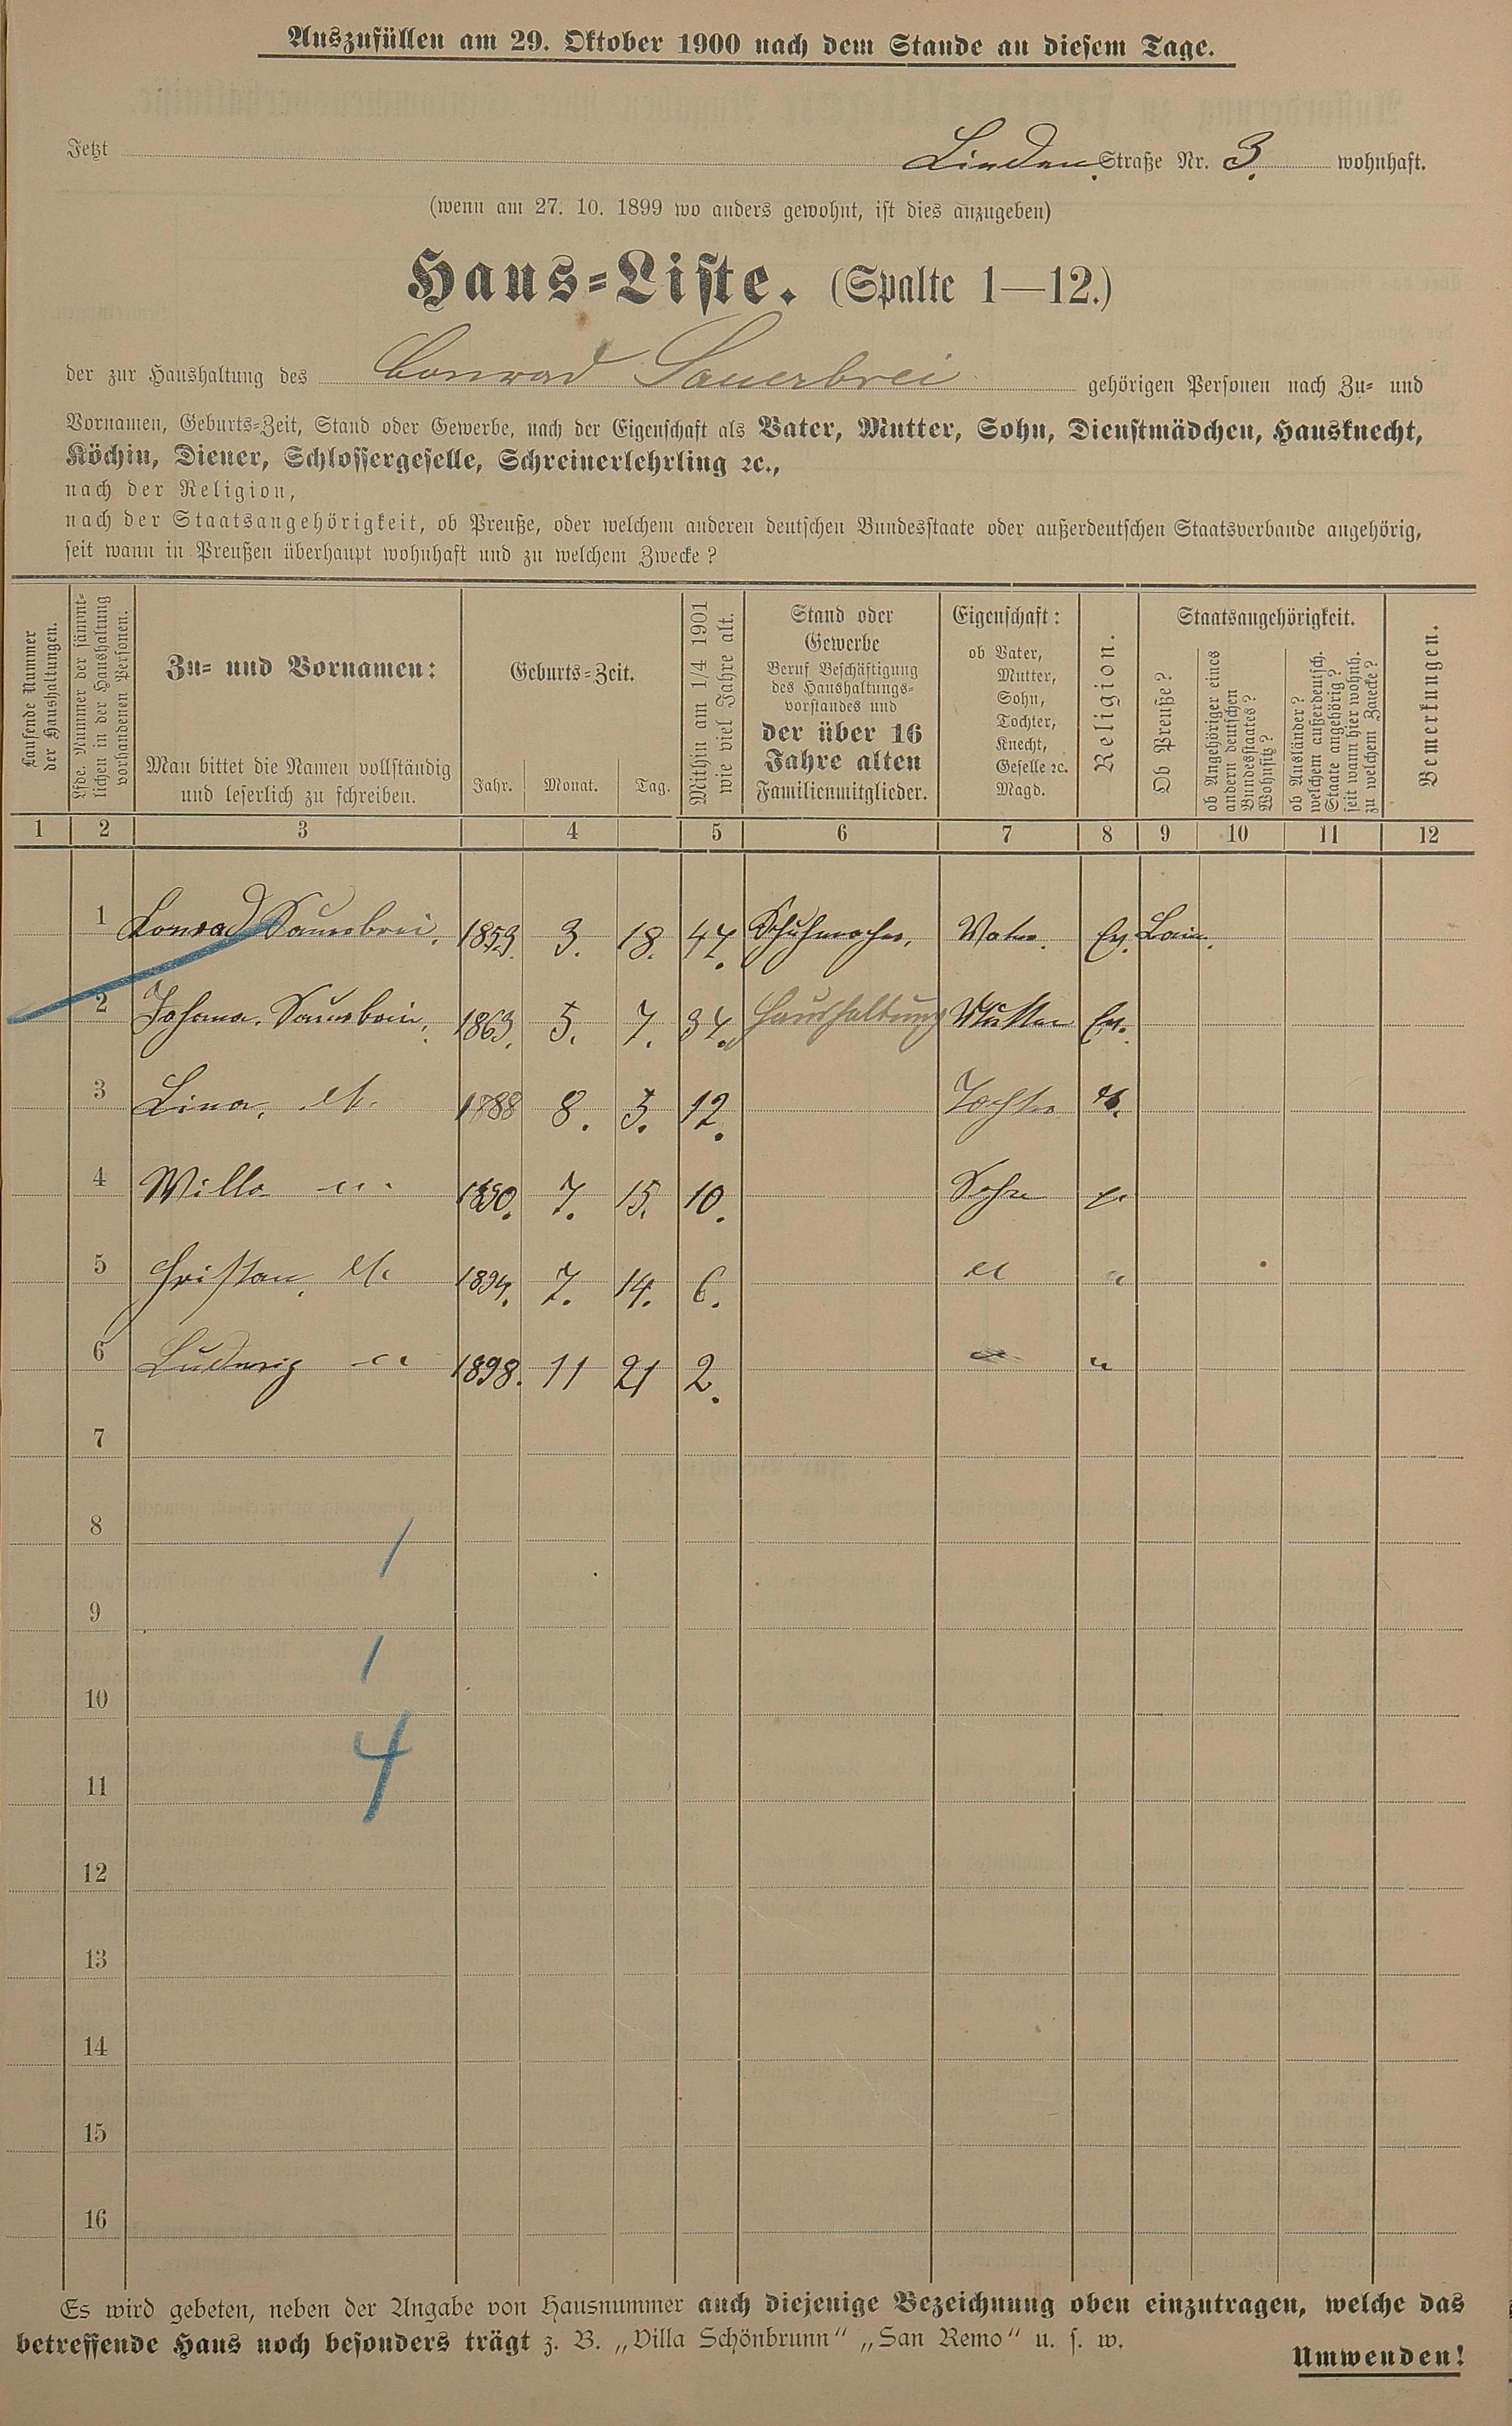 Auszufüllen am 29. Oktober 1900 nach dem Stande an diesem Tage.
Jetzt Linden Straße Nr. 3. wohnhaft.
(wenn am 27. 10. 1899 wo anders gewohnt, ist dies anzugeben)
Haus=Liste. (Spalte 1—12.)
der zur Haushaltung des Conrad Sauerbrei gehörigen Personen nach Zu= und
Vornamen, Geburts=Zeit, Stand oder Gewerbe, nach der Eigenschaft als Vater, Mutter, Sohn, Dienstmädchen, Hausknecht,
Köchin, Diener, Schlossergeselle, Schreinerlehrling ꝛc.,
nach der Religion,
nach der Staatsangehörigkeit, ob Preuße, oder welchem anderen deutschen Bundesstaate oder außerdeutschen Staatsverbande angehörig,
seit wann in Preußen überhaupt wohnhaft und zu welchem Zwecke?
Laufende Nummer
der Haushaltungen.
Lfde. Nummer der sämmt=
lichen in der Haushaltung
vorhandenen Personen.
Zu= und Vornamen:
Man bittet die Namen vollständig
und leserlich zu schreiben.
Geburts=Zeit.
Jahr. Monat. Tag.
Mithin am 1/4 1901
wie viel Jahre alt.
Stand oder
Gewerbe
Beruf Beschäftigung
des Haushaltungs=
vorstandes und
der über 16
Jahre alten
Familienmitglieder.
Eigenschaft:
ob Vater,
Mutter,
Sohn,
Tochter,
Knecht,
Geselle ꝛc.
Magd.
Religion.
Staatsangehörigkeit.
Ob Preuße?
ob Angehöriger eines
andern deutschen
Bundesstaates?
Wohnsitz?
ob Ausländer?
welchem außerdeutsch.
Staate angehörig?
seit wann hier wohnh.
zu welchem Zwecke?
Bemerkungen.
1 2 3 4 5 6 7 8 9 10 11 12
1 Conrad Sauerbrei. 1853. 3. 18. 47. Schuhmacher. Vater. Ev.
2 Johanna. Sauerbrei. 1863. 5. 7. 37. Haushaltung Mutter Ev.
3 Lina. 1888 8. 5. 12. Tochter
4 Willa " 1890. 7. 15. 10. Sohn
5 1894. 7. 14. 6. " "
6 Ludwig " 1898. 11 21 2. " "
7
8 1
9 1
10
11 4
12
13
14
15
16
Es wird gebeten, neben der Angabe von Hausnummer auch diejenige Bezeichnung oben einzutragen, welche das
betreffende Haus noch besonders trägt z. B. „Villa Schönbrunn“ „San Remo“ u. s. w.
Umwenden!